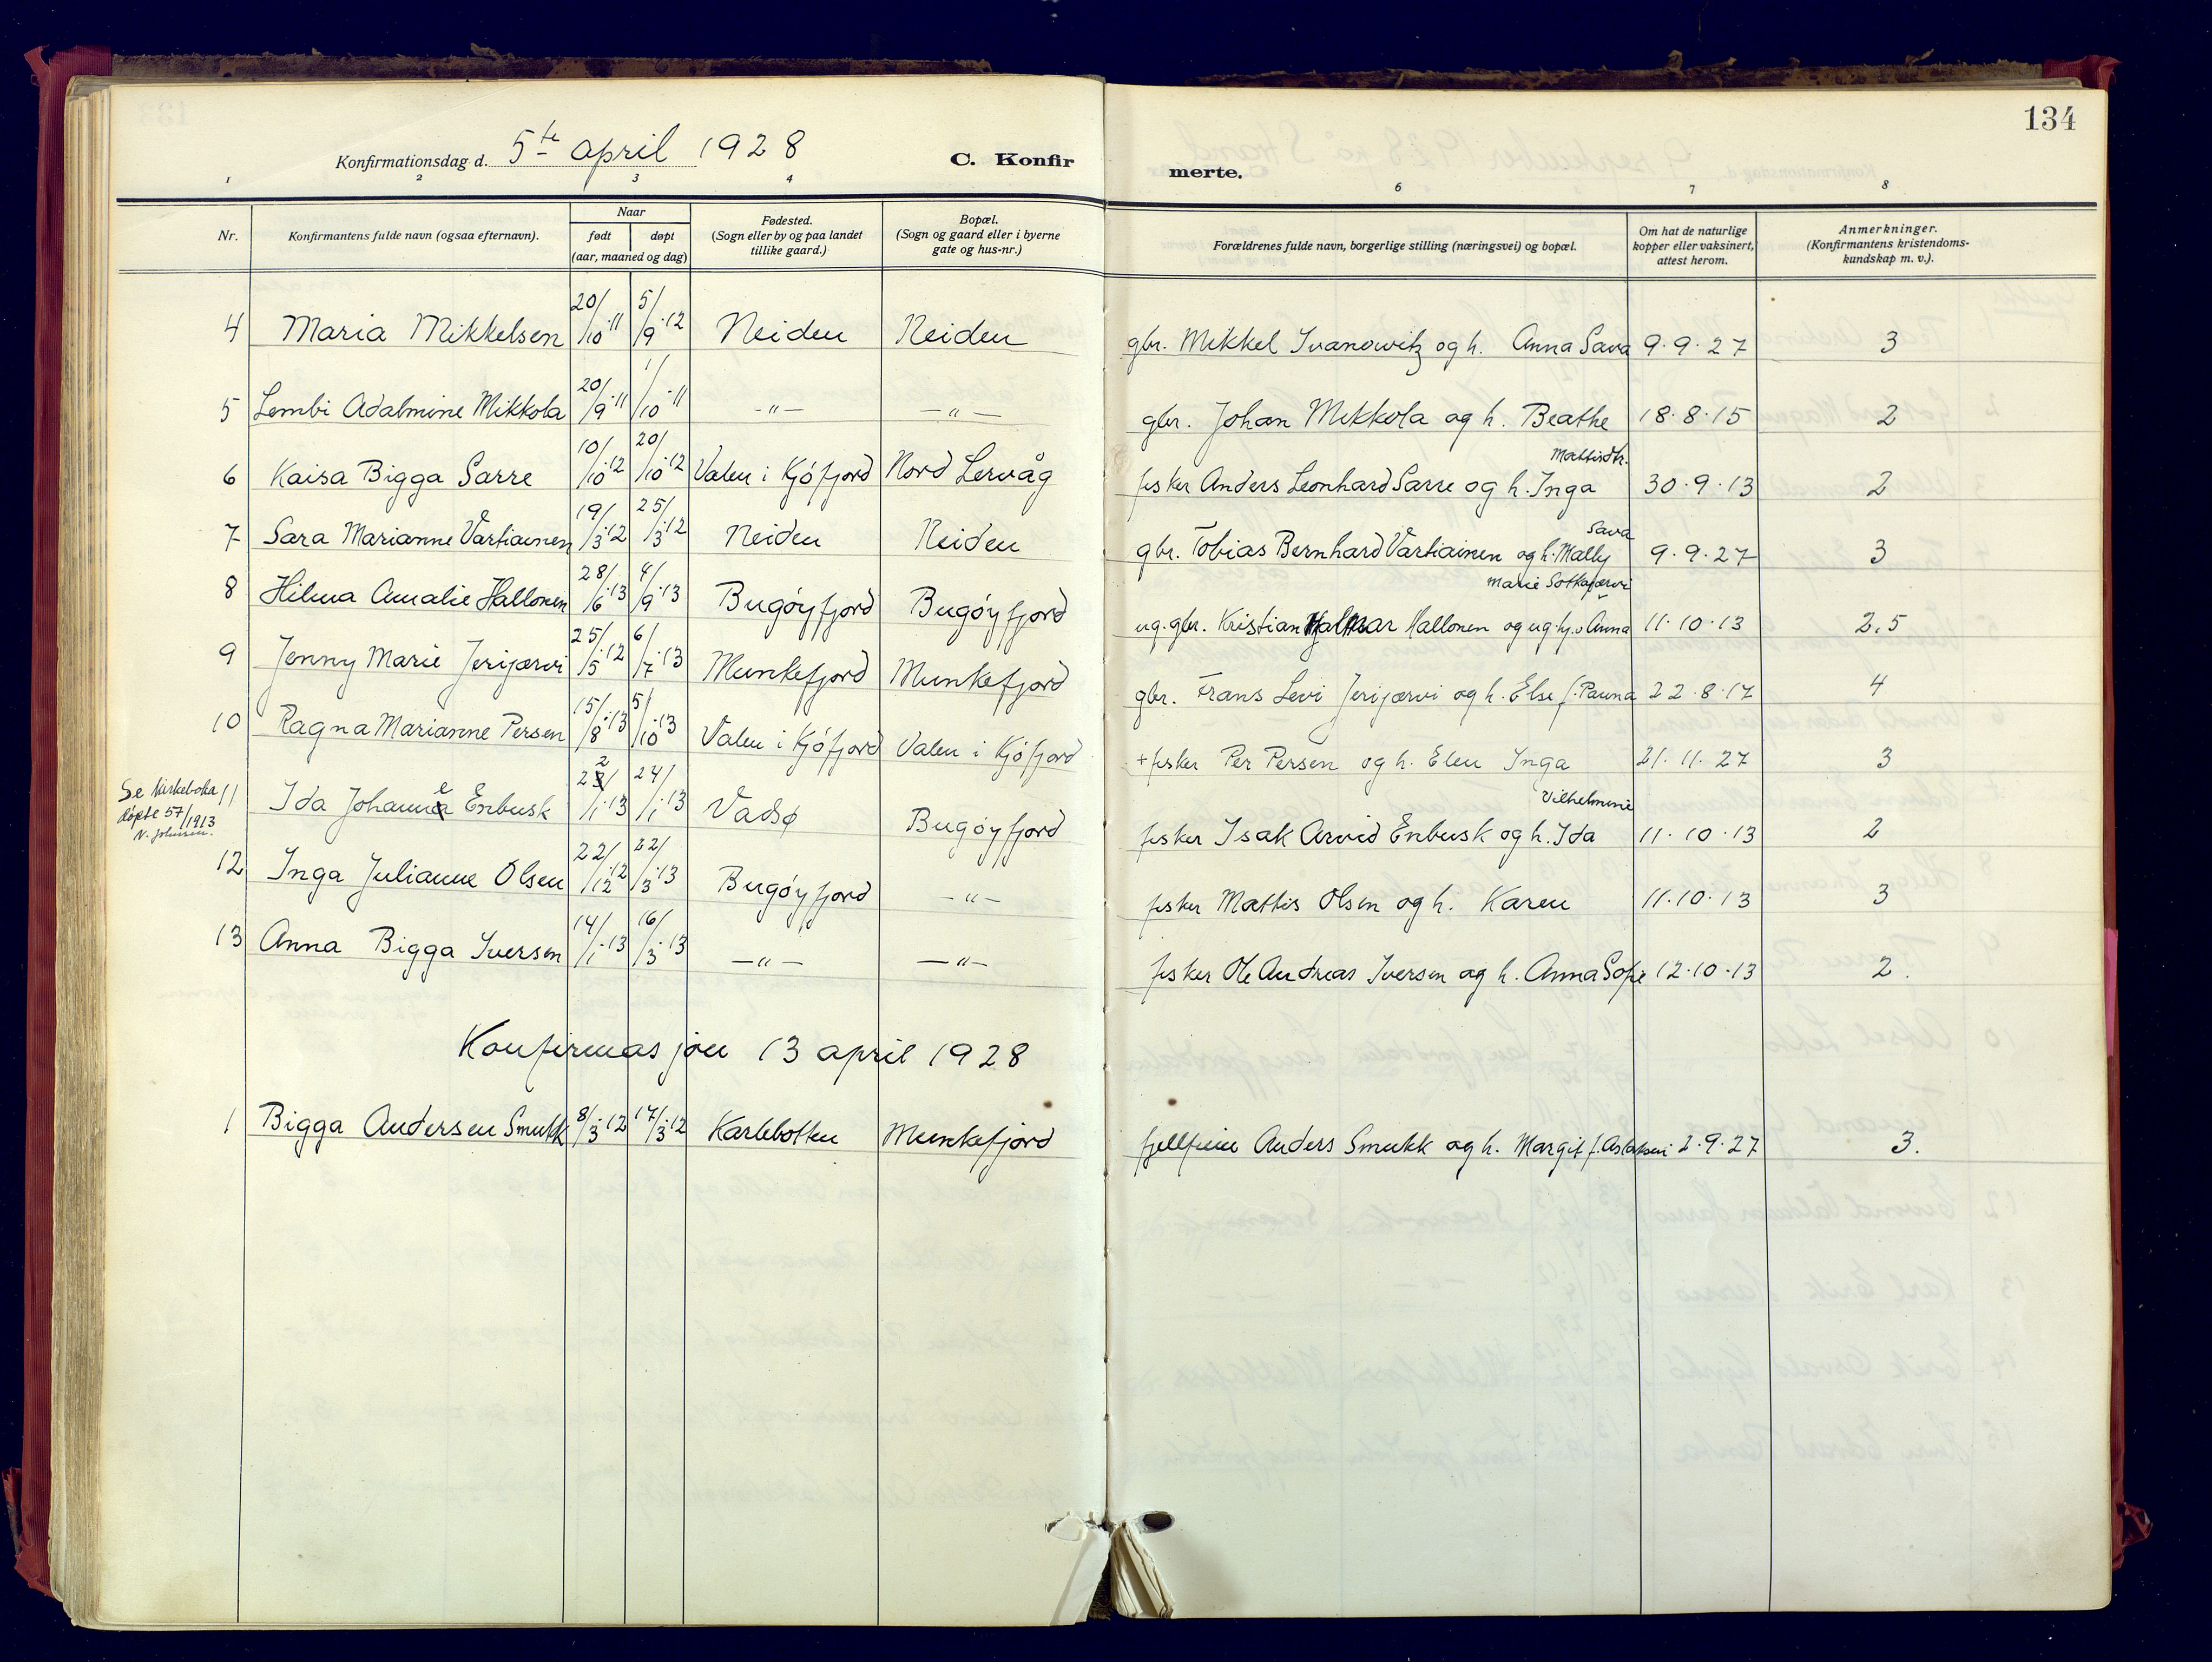 134
Konfirmationsdag d. 5te april 1928 C. Konfir merte.
1 2 3 4 6 7 8
Nr. Konfirmantens fulde navn (ogsaa efternavn). Naar født døpt (aar, maaned og dag) Fødested. (Sogn eller by og paa landet tillike gaard.) Bopæl. (Sogn og gaard eller i byerne gate og hus-nr.) Forældrenes fulde navn, borgerlige stilling (næringsvei) og bopæl. Om hat de naturlige kopper eller vaksinert, attest herom. Anmerkninger. (Konfirmantens kristendoms-kundskap m. v.).
4 Maria Mikkelsen 20/10-11 5/9-12 Neiden Neiden gbr. Mikkel Ivanowitz og h. Anna Sava 9.9.27 3
5 Lembi Adalmine Mikkola 20/9-11 1/10-11 -"- -"- gbr. Johan Mikkola og h. Beathe 18.8.15 2
6 Kaisa Bigga Sarre 10/10-12 20/10-12 Valen i Kjófjord Nord Lervåg fisker Anders Leonhard Sarre og h. Inga Mattisdtr. 30.9.13 2
7 Sara Marianne Vartiainen 19/3-12 25/3-12 Neiden Neiden gbr. Tobias Bernhard Vartiainen og h. Mally Sava 9.9.27 3
8 Hilma Amalie Hallonen 28/6-13 4/9-13 Bugóyfjord Bugóyfjord ug. gbr. Kristian Hjalmar Hallonen og ug. hj. Anna Marie Sotkajærvi 11.10.13 2,5
9 Jenny Marie Jerijærvi 25/5-12 6/7-13 Munkefjord Munkefjord gbr. Frans Levi Jerijærvi og h. Else f. Pauna 22.8.17 4
10 Ragna Marianne Persen 15/8-13 5/10-13 Valen i Kjófjord Valen i Kjófjord + fisker Per Persen og h. Elen Inga 21.11.27 3
Se kirkeboka døpte 57/1913 N. Johnsen.
11 Ida Johanne Enbusk 22/1-13 24/1-13 Vadsø Bugóyfjord fisker Isak Arvid Enbusk og h. Ida Vilhelmine 11.10.13 2
12 Inga Julianne Olsen 22/12-12 22/3-13 Bugóyfjord -"- fisker Mattis Olsen og h. Karen 11.10.13 3
13 Anna Bigga Iversen 14/1-13 16/3-13 -"- -"- fisker Ole Andreas Iversen og h. Anna Sofie 12.10.13 2.
Konfirmasjon 13 april 1928
1 Bigga Andersen Smukk 8/3-12 17/3-12 Karlebotten Munkefjord Anders Smukk og h. Margit f. Aslaksen 2.9.27 3.